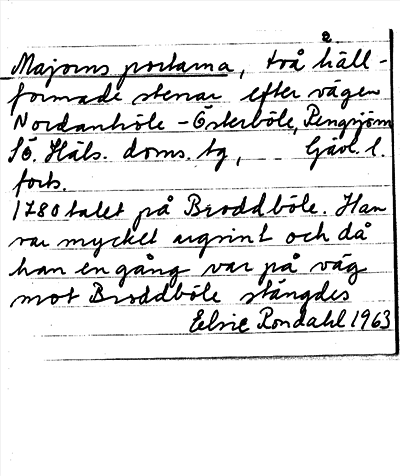 2.
Majorns portarna, två häll-
formade stenar efter vägen
Nordanhöle - Österböle, Rengsjöm
Sö. Häls. doms. tg, Gävl. l.
forts.
1780 talet på Broddböle. Han
var mycket argsint och då
han en gång var på väg
mot Broddböle stängdes
Rondahl 1963